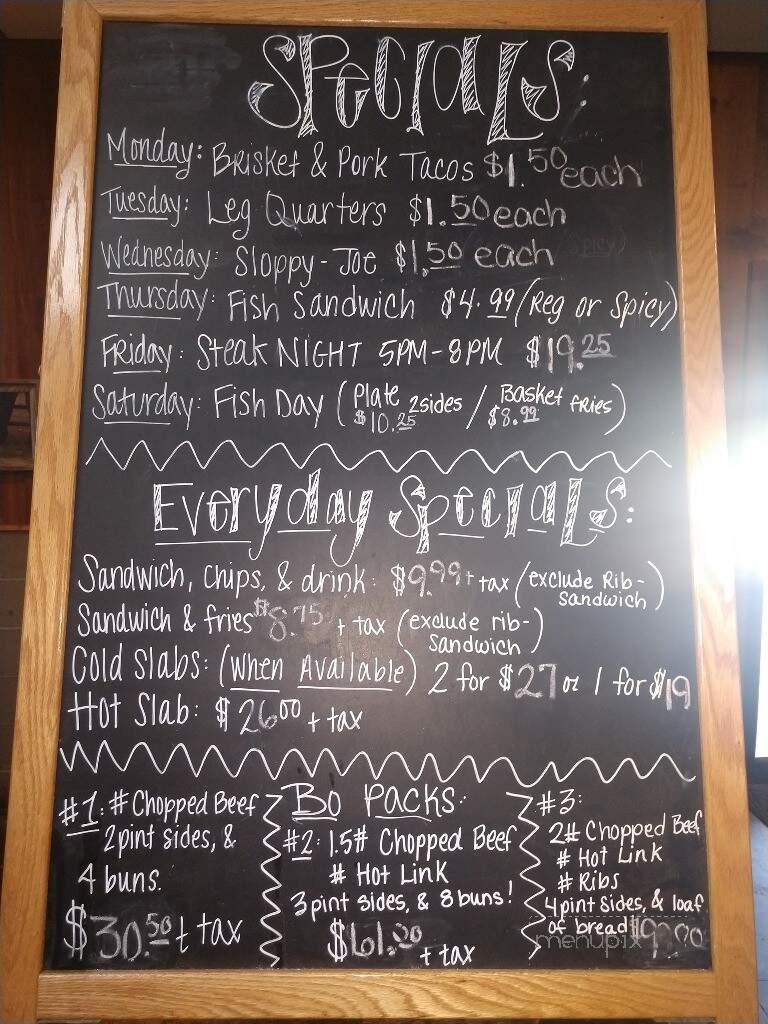 Specials:
Monday: Brisket & Pork Tacos $1.50 each
Tuesday: Leg Quarters $1.50 each
Wednesday: Sloppy-Joe $1.50 each
Thursday: Fish Sandwich $4.99 (Reg or Spicy)
Friday: Steak NIGHT 5PM-8PM $19.25
Saturday: Fish Day (Plate $10.25 2sides / Basket $8.99 fries)
Everyday Specials:
Sandwich, Chips, & drink: $9.99 + tax (exclude Rib-Sandwich)
Sandwich & fries $8.75 + tax (exclude rib-Sandwich)
Cold Slabs: (When Available) 2 for $27 or 1 for $19
Hot Slab: $26.00 + tax
Bo Packs:
#1: # Chopped Beef
2pint sides, &
4 buns.
$30.50 + tax
#2: 1.5# Chopped Beef
# Hot Link
3pint sides, & 8 buns!
$61.00 + tax
#3:
2# Chopped Beef
# Hot Link
# Ribs
4pint sides, & loaf
of bread
menupix